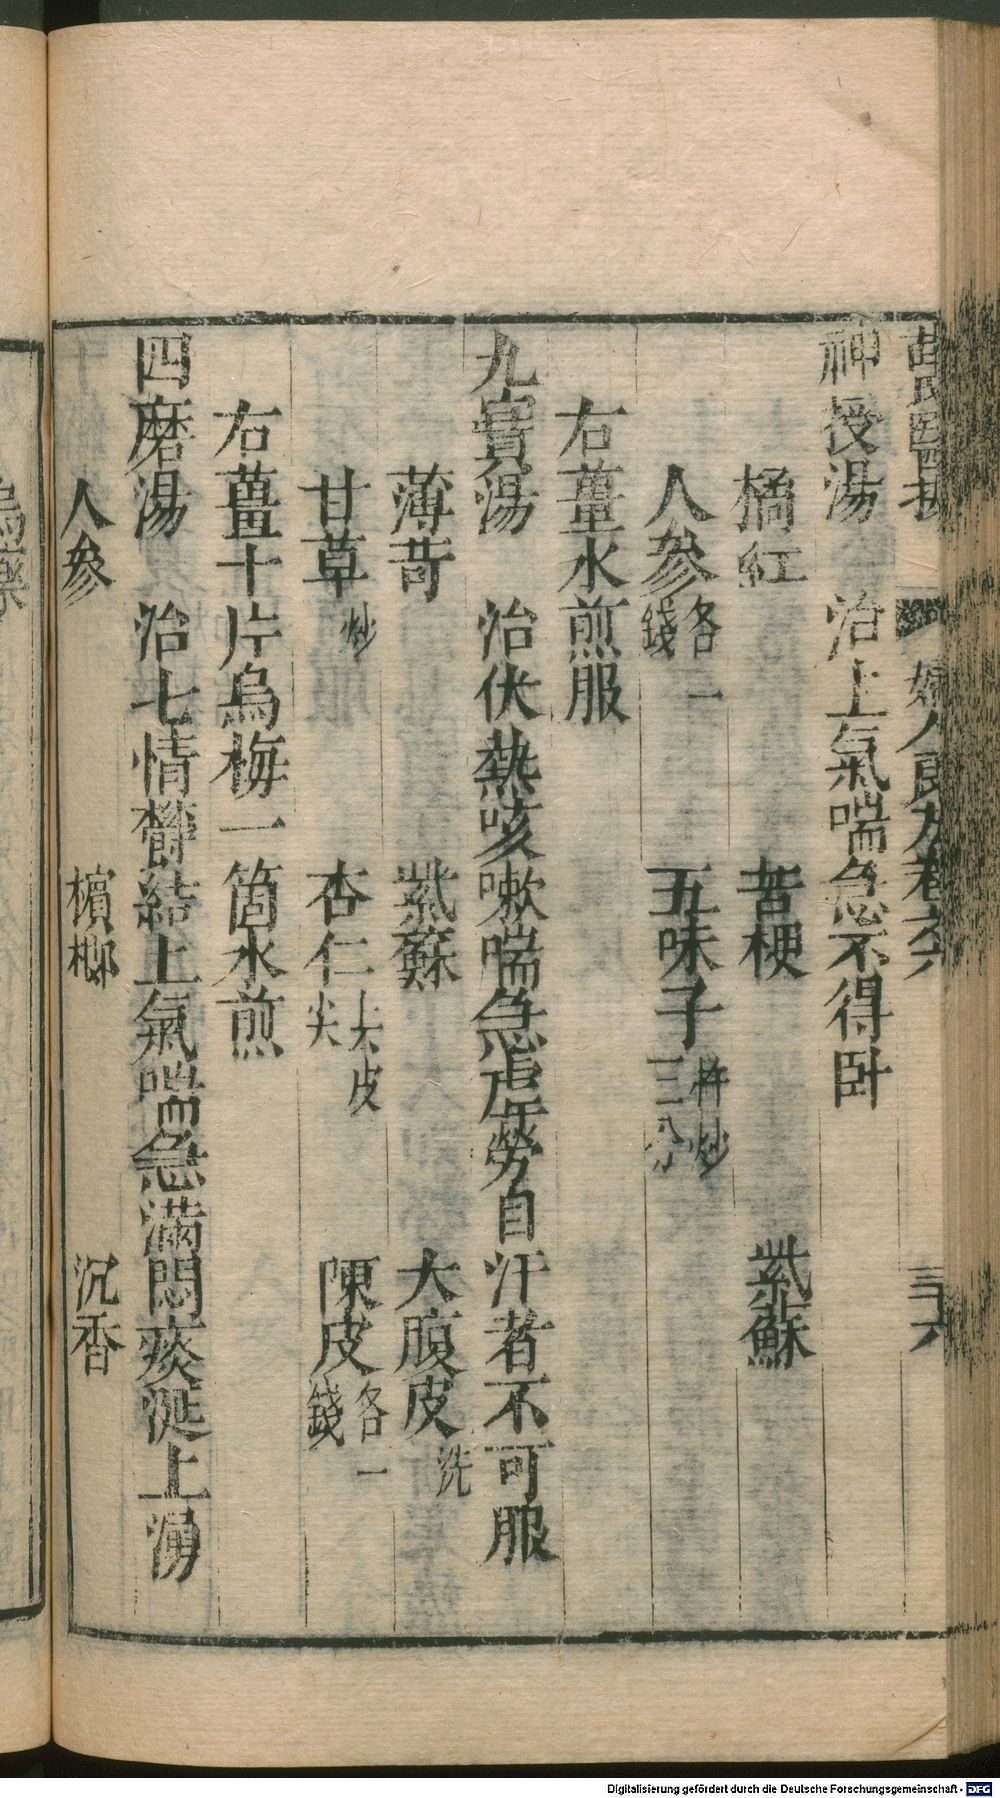 苗氏醫抄 婦人良方卷六 三十六
神授湯 治上氣喘急不得卧
橘紅 苦梗 紫蘇
人參各一錢 五味子杵炒三分
右薑水煎服
九寶湯 治伏熱咳嗽喘急虛勞自汗者不可服
薄苛 紫蘇 大腹皮洗
甘草炒 杏仁去皮尖 陳皮各一錢
右薑十片烏梅一箇水煎
四磨湯 治七情欝結上氣喘急滿悶痰涎上湧
人參 檳榔 沉香
烏藥
Digitalisierung gefördert durch die Deutsche Forschungsgemeinschaft - DFG